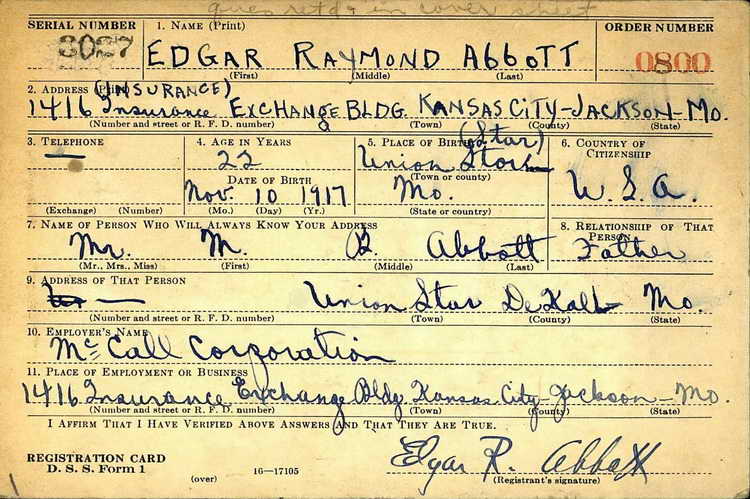 ques retd. in cover sheet
SERIAL NUMBER 1. NAME (Print) ORDER NUMBER
3027 EDGAR RAYMOND ABBOTT 0800
(First) (Middle) (Last)
2. ADDRESS (Print) (INSURANCE)
1416 Insurance EXCHANGE BLDG. KANSAS CITY-JACKSON-MO.
(Number and street or R. F. D. number) (Town) (County) (State)
3. TELEPHONE 4. AGE IN YEARS 5. PLACE OF BIRTH (Star) 6. COUNTRY OF CITIZENSHIP
— 22 Union Star
DATE OF BIRTH (Town or county)
Nov. 10 1917 Mo. U.S.A.
(Exchange) (Number) (Mo.) (Day) (Yr.) (State or country)
7. NAME OF PERSON WHO WILL ALWAYS KNOW YOUR ADDRESS 8. RELATIONSHIP OF THAT PERSON
Mr. M. Abbott Father
(Mr., Mrs., Miss) (First) (Middle) (Last)
9. ADDRESS OF THAT PERSON
— Union Star DeKalb Mo.
(Number and street or R. F. D. number) (Town) (County) (State)
10. EMPLOYER'S NAME
McCall Corporation
11. PLACE OF EMPLOYMENT OR BUSINESS
1416 Insurance Exchange Bldg Kansas City-Jackson-Mo.
(Number and street or R. F. D. number) (Town) (County) (State)
I AFFIRM THAT I HAVE VERIFIED ABOVE ANSWERS AND THAT THEY ARE TRUE.
REGISTRATION CARD Edgar R. Abbott
D. S. S. Form 1 (over) 16—17105 (Registrant's signature)